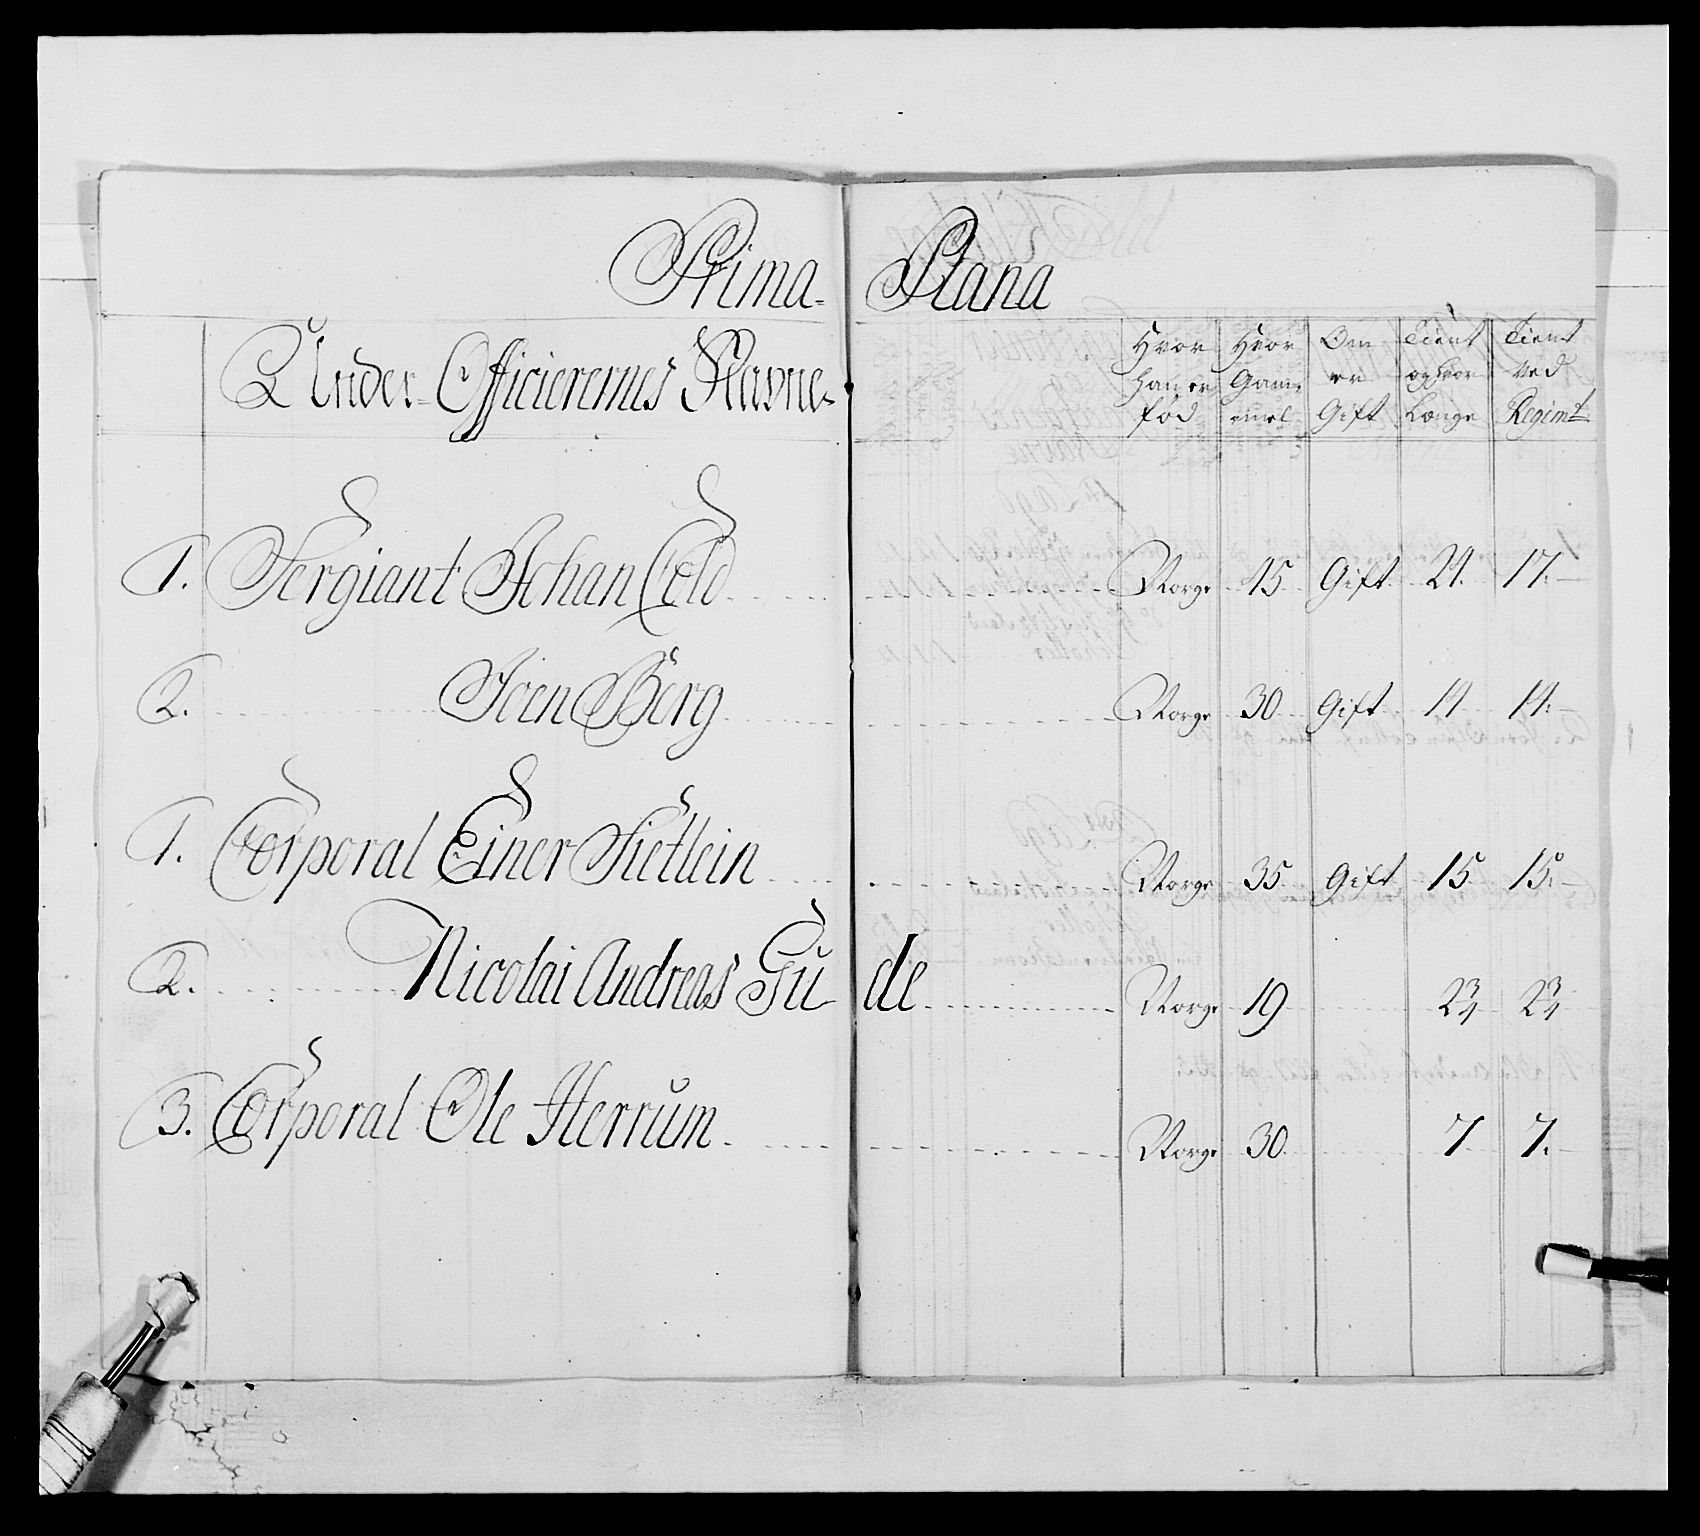 Prima- Plana
Under-Officierernes Navne.
Hvor han er fød
Hvor Gam- mel
Om er Gift
Tient og hvor Længe
Tient ved Regimt
1. Sergiant Johan Cold Norge 45 Gift 21. 17.
2. Joen Berg Norge 30 Gift 14 14.
1. Corporal Einer Sietlein Norge 35 Gift 15 15.
2. Nicolai Andreas Gude Norge 19 2 3/4 2 3/4
3. Corporal Ole Herrum Norge 30 7 7.